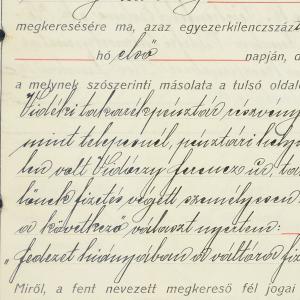 megkeresésére ma, azaz egyezerkilenczszáz
hó első napján, d
a melynek szószerinti másolata a tulsó oldalo
Vidéki takarékpénztár részvény
mint telepesnél, pénztári hely
len volt Vidorszy Ferencz ur, ta
lőnek fizetés végett személyesen
a következő választ nyertem:
„fedezet hiányában a váltóra fiz
Miről, a fent nevezett megkereső fél jogai